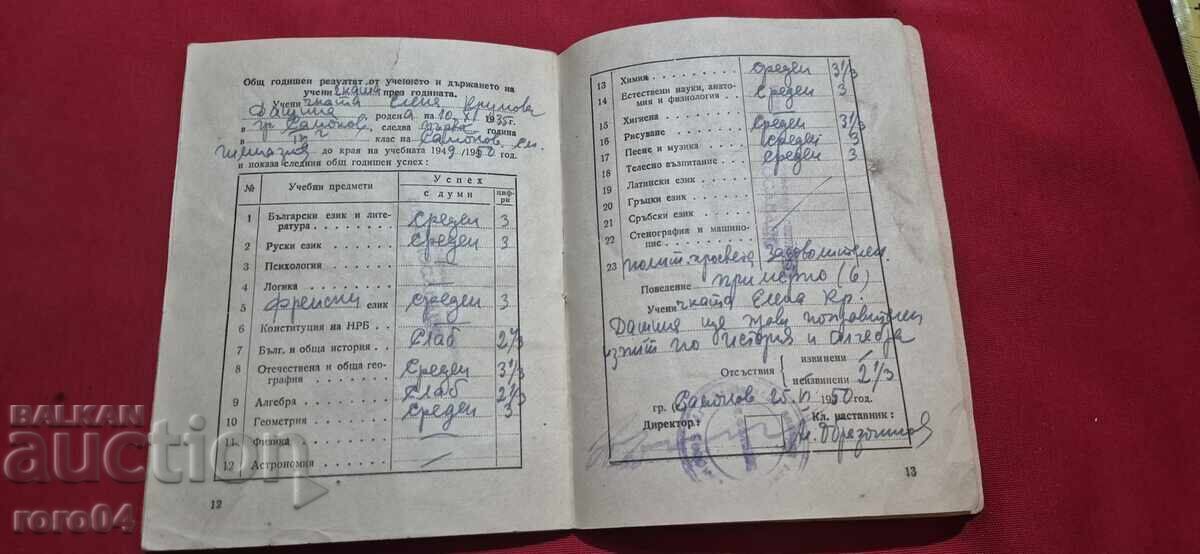 Общ годишен резултат от учението и държането на
ученичката през годината.
Ученичката Елена Крумова
родена на 10. XI 1935г.
в гр. Самоков, следва първа година
в клас на Самоков. см.
гимназия до края на учебната 1949/1950 год.
и показа следния общ годишен успех:
№ Учебни предмети Успех
с думи цифри
1 Български език и литература Среден 3
2 Руски език Среден 3
3 Психология
4 Логика
5 Френски език Среден 3
6 Конституция на НРБ
7 Бълг. и обща история Слаб 2 1/3
8 Отечествена и обща география Среден 3 1/3
9 Алгебра Слаб 2 1/3
10 Геометрия Среден 3
11 Физика
12 Астрономия
12
13 Химия Среден 3 1/3
14 Естествени науки, анатомия и физиология Среден 3
15 Хигиена
16 Рисуване Среден 3 1/3
17 Пение и музика Среден 3
18 Телесно възпитание Среден 3
19 Латински език
20 Гръцки език
21 Сръбски език
22 Стенография и машинопис
23 полит. просвета Задоволителен.
Поведение примерно (6)
Ученичката Елена Кр.
ще държи поправителен
изпит по история и алгебра
Отсъствия извинени
неизвинени 2 1/3
гр. Самоков 25. VI 1950 год.
Директор: Кл. наставник:
13
BALKAN
auction
roro04